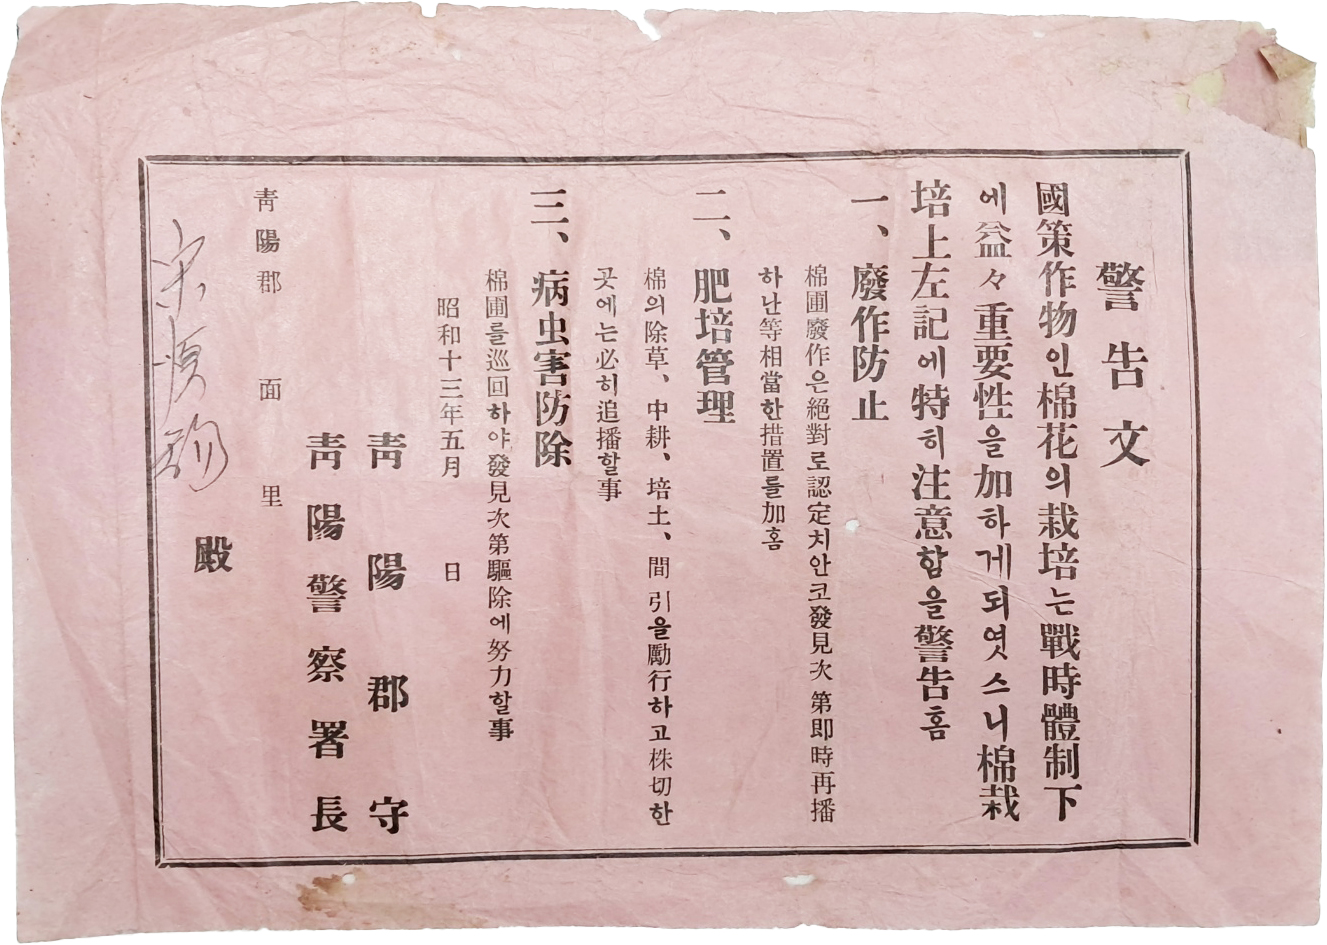 警告文
國策作物인棉花의栽培는戰時體制下
에益々重要性을加하게되엿스니棉栽
培上左記에特히注意함을警告홈
一、廢作防止
棉圃廢作은絕對로認定치안코發見次第即時再播
하난等相當한措置를加홈
二、肥培管理
棉의除草、中耕、培土、間引을勵行하고株切한
곳에는必히追播할事
三、病虫害防除
棉圃를巡回하야發見次第驅除에努力할事
昭和十三年五月 日
靑陽郡守
靑陽警察署長
靑陽郡 面 里
殿